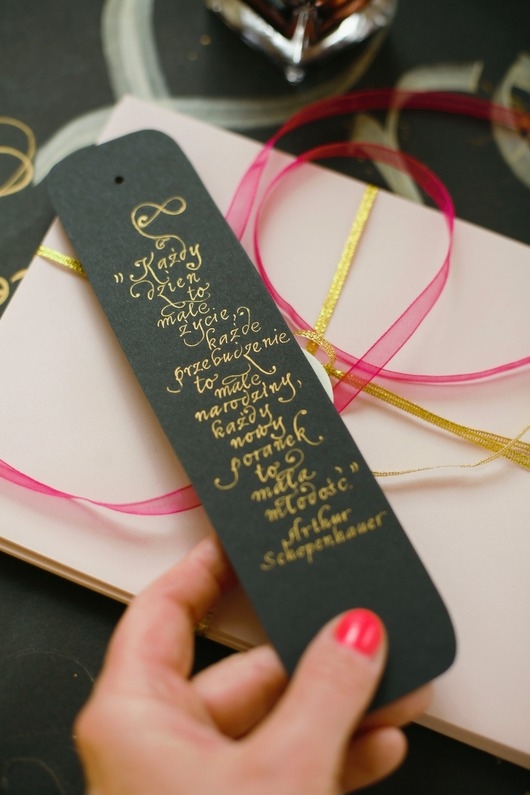 "Każdy
dzień
to
małe
życie,
każde
przebudzenie
to małe
narodziny,
każdy
nowy
poranek
to
mała
młodość."
Arthur
Schopenhauer